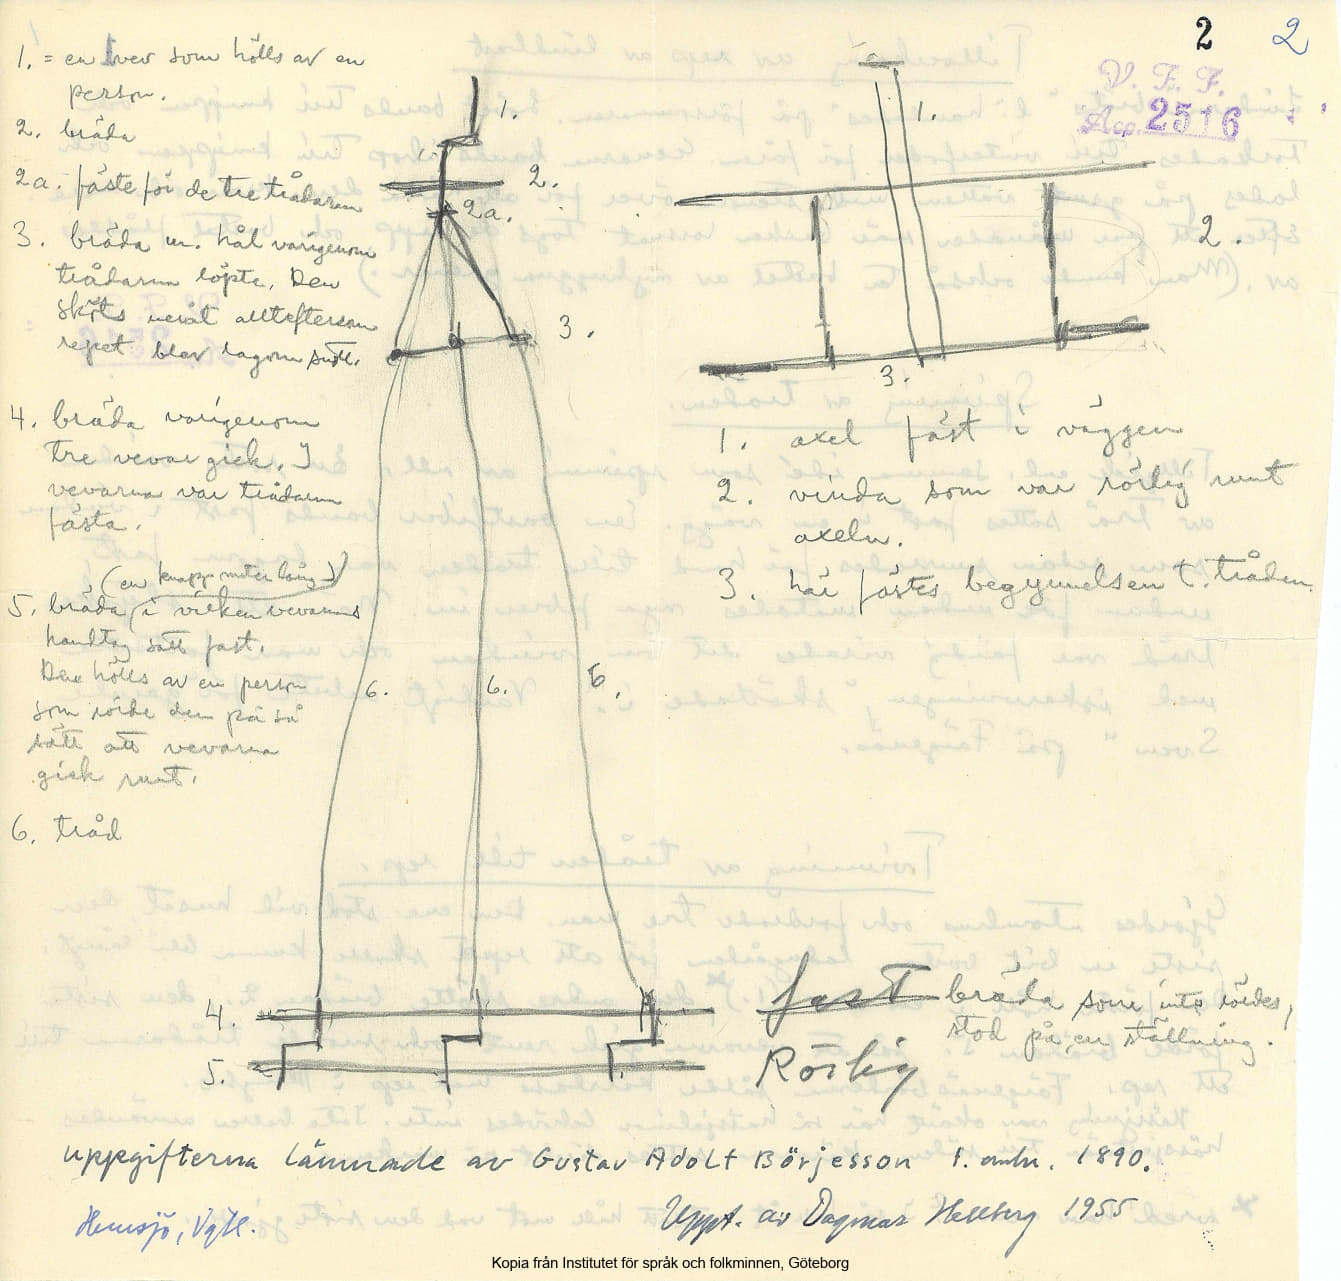 2 2
V. F. F.
Acc. 2516
1. = en vev som hölls av en
person.
2. bräda
2a. fäste för de tre trådarna
3. bräda m. hål varigenom
trådarna löpte. Den
sköts uppåt allteftersom
repet blev lagom snott.
4. bräda varigenom
tre vevar gick. I
vevarna var trådarna
fästa.
(en knapp meter lång)
5. bräda i vilken vevarnas
handtag satt fast.
Den hölls av en person
som rörde den på så
sätt att vevarna
gick runt.
6. tråd
1.
2.
2a.
3.
6. 6. 6.
4.
5.
1.
2.
3.
1. axel fäst i väggen
2. vinda som var rörlig runt
axeln.
3. här fästes begynnelsen t. tråden.
fast bräda som inte rördes,
stod på en ställning.
Rörlig
uppgifterna lämnade av Gustav Adolf Börjesson f. omkr. 1890.
Hemsjö, Vgtl.
Uppt. av Dagmar Hellberg 1955
Kopia från Institutet för språk och folkminnen, Göteborg